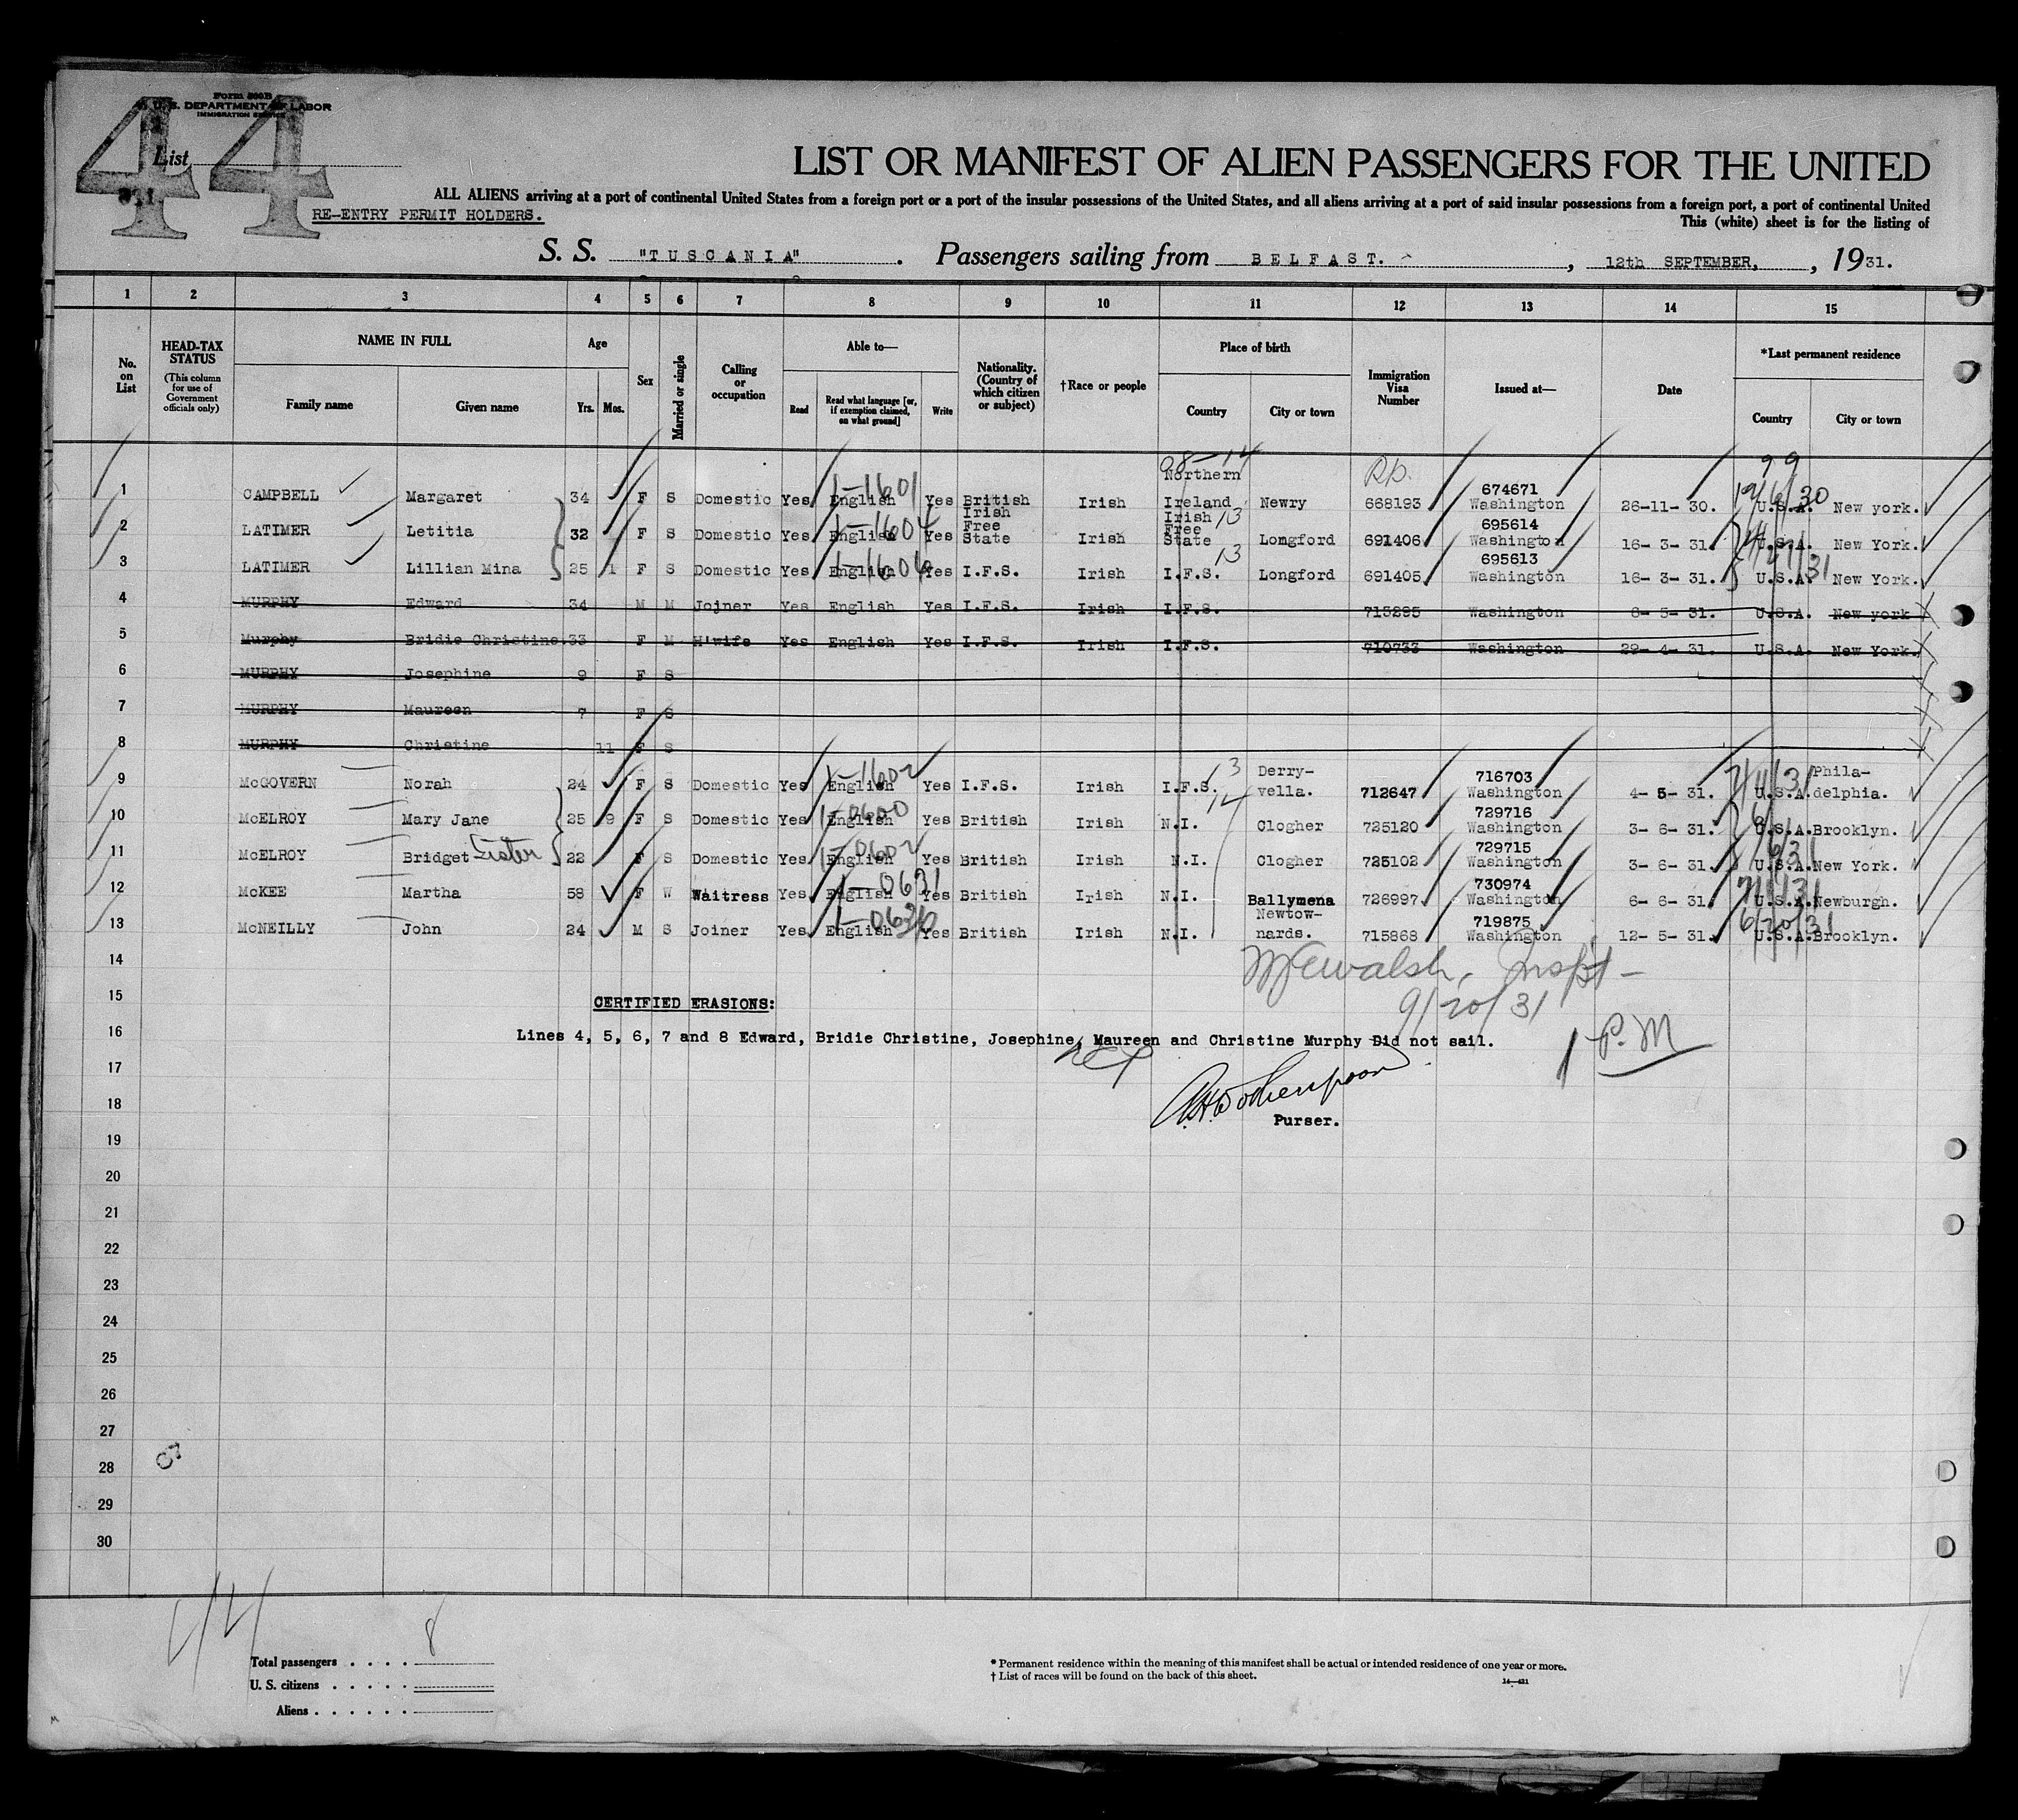 Form 500B
U. S. DEPARTMENT OF LABOR
IMMIGRATION SERVICE
44
List
RE-ENTRY PERMIT HOLDERS.
LIST OR MANIFEST OF ALIEN PASSENGERS FOR THE UNITED
ALL ALIENS arriving at a port of continental United States from a foreign port or a port of the insular possessions of the United States, and all aliens arriving at a port of said insular possessions from a foreign port, a port of continental United
This (white) sheet is for the listing of
S. S. "TUSCANIA" . Passengers sailing from BELFAST. , 12th SEPTEMBER, , 1931.
1 2 3 4 5 6 7 8 9 10 11 12 13 14 15
No. on List
HEAD-TAX STATUS (This column for use of Government officials only)
NAME IN FULL Family name Given name
Age Yrs. Mos.
Sex
Married or single
Calling or occupation
Able to— Read Read what language [or, if exemption claimed, on what ground] Write
Nationality. (Country of which citizen or subject)
†Race or people
Place of birth Country City or town
Immigration Visa Number
Issued at—
Date
*Last permanent residence Country City or town
1 CAMPBELL Margaret 34 F S Domestic Yes English 1-1601 Yes British Irish Northern Ireland Newry 668193 674671 Washington 26-11-30. U.S.A. New york.
2 LATIMER Letitia 32 F S Domestic Yes English 1-1604 Yes Irish Free State Irish Irish Free State 13 Longford 691406 695614 Washington 16-3-31. U.S.A. New York.
3 LATIMER Lillian Mina 25 1 F S Domestic Yes English Yes I.F.S. Irish I.F.S. 13 Longford 691405 695613 Washington 16-3-31. U.S.A. New York.
4 MURPHY Edward 34 M M Joiner Yes English Yes I.F.S. Irish I.F.S. 713295 Washington 8-5-31. U.S.A. New york
5 Murphy Bridie Christine. 33 F M H'wife Yes English Yes I.F.S. Irish I.F.S. 710733 Washington 29-4-31. U.S.A. New York.
6 MURPHY Josephine 9 F S
7 MURPHY Maureen 7 F S
8 MURPHY Christine 11 F S
9 McGOVERN Norah 24 F S Domestic Yes English 1-1602 Yes I.F.S. Irish I.F.S. 13 Derry-vella. 712647 716703 Washington 4-5-31. U.S.A. Phila-delphia.
10 McELROY Mary Jane 25 9 F S Domestic Yes English 1-0600 Yes British Irish N.I. 14 Clogher 725120 729716 Washington 3-6-31. U.S.A. Brooklyn.
11 McELROY Bridget Sister 22 F S Domestic Yes English 1-0602 Yes British Irish N.I. Clogher 725102 729715 Washington 3-6-31. U.S.A. New York.
12 McKEE Martha 58 F W Waitress Yes English 1-0631 Yes British Irish N.I. Ballymena 726997 730974 Washington 6-6-31. U.S.A. Newburgh.
13 McNEILLY John 24 M S Joiner Yes English Yes British Irish N.I. Newtow-nards. 715868 719875 Washington 12-5-31. U.S.A. Brooklyn.
14
Walsh, Inspt-
15 CERTIFIED ERASIONS:
9/20/31
16 Lines 4, 5, 6, 7 and 8 Edward, Bridie Christine, Josephine, Maureen and Christine Murphy Did not sail.
1 P.M
17
18
Purser.
19
20
21
22
23
24
25
26
27
28
29
30
44
Total passengers . . . . 8
U. S. citizens . . . . .
Aliens . . . . . .
* Permanent residence within the meaning of this manifest shall be actual or intended residence of one year or more.
† List of races will be found on the back of this sheet.
14—431